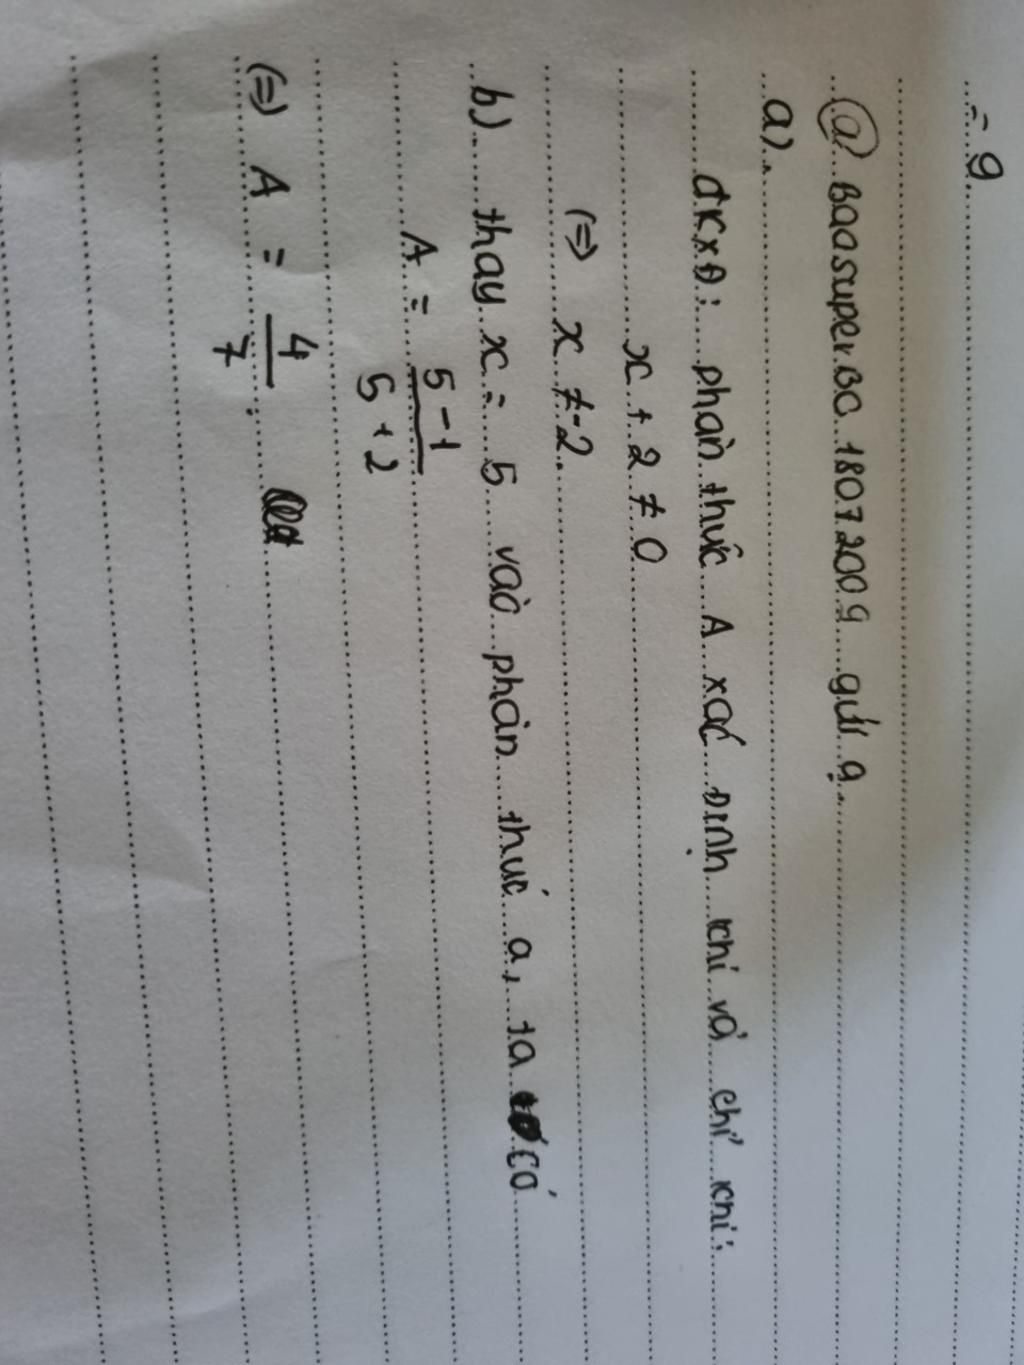 = 9
@ Baasuper.BC 1807.2009 gửi ạ.
a).
đkxĐ: phân thức A xác Định khi và chỉ khi:
x + 2 ≠ 0
(=) x ≠ -2.
b). thay x = 5 vào phân thức a, ta có
A = \frac{5 - 1}{5 + 2}
(=) A = \frac{4}{7}.